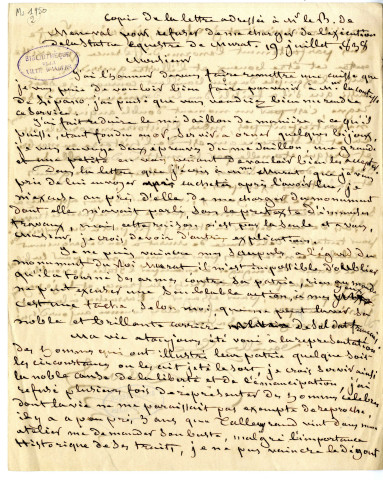 Copie de la lettre adressée à Mr le B. de
Meneval pour refuser de me charger de l'exécution
de la statue équestre de Murat. 19 juillet 1838
Monsieur
J'ai l'honneur de vous faire remettre une caisse que
je vous prie de vouloir bien faire parvenir à Mme la comtesse
de Lipano. j'ai pensé que vous voudriez bien me rendre
ce service.
J'ai fait réduire le médaillon de manière à ce qu'il
puisse, étant fondu en or, servir à orner quelques bijoux,
je vous envoye deux épreuves du médaillon, une grande
et une petite en vous priant de vouloir bien les accepter
Dans la lettre que j'écris à Mme Murat, que je vous
prie de lui envoyer cachetée, après l'avoir lue, je
m'excuse auprès d'elle de me charger du monument
dont elle m'avait parlé, sous le prétexte d'immenses
travaux, mais cette raison, c'est pour la seule et à vous,
Monsieur, je crois devoir d'autres explications.
Je ne puis vaincre mes scrupules à l'égard du
monument du Roi Murat il m'est impossible d'oublier
qu'il a tourné ses armes contre sa patrie, rien au monde
ne peut excuser une semblable action, à mes yeux
c'est une tache selon moi, qui ne peut laver sa
noble et brillante carrière de soldat français
Ma vie a toujours été vouée à la représentation
des hommes qui ont illustré leur patrie quelque soit
les circonstances où les ait jeté le sort, je crois servir ainsi
la noble cause de la liberté et de l'émancipation, j'ai
refusé plusieurs fois de représenter des hommes célèbres
dont la vie ne me paraissait pas exempte de reproche
il y a à peu près 3 ans que Talleyrand vint dans mon
atelier me demander son buste, malgré l'importance
Historique de ses traits, je ne pus vaincre le dégout